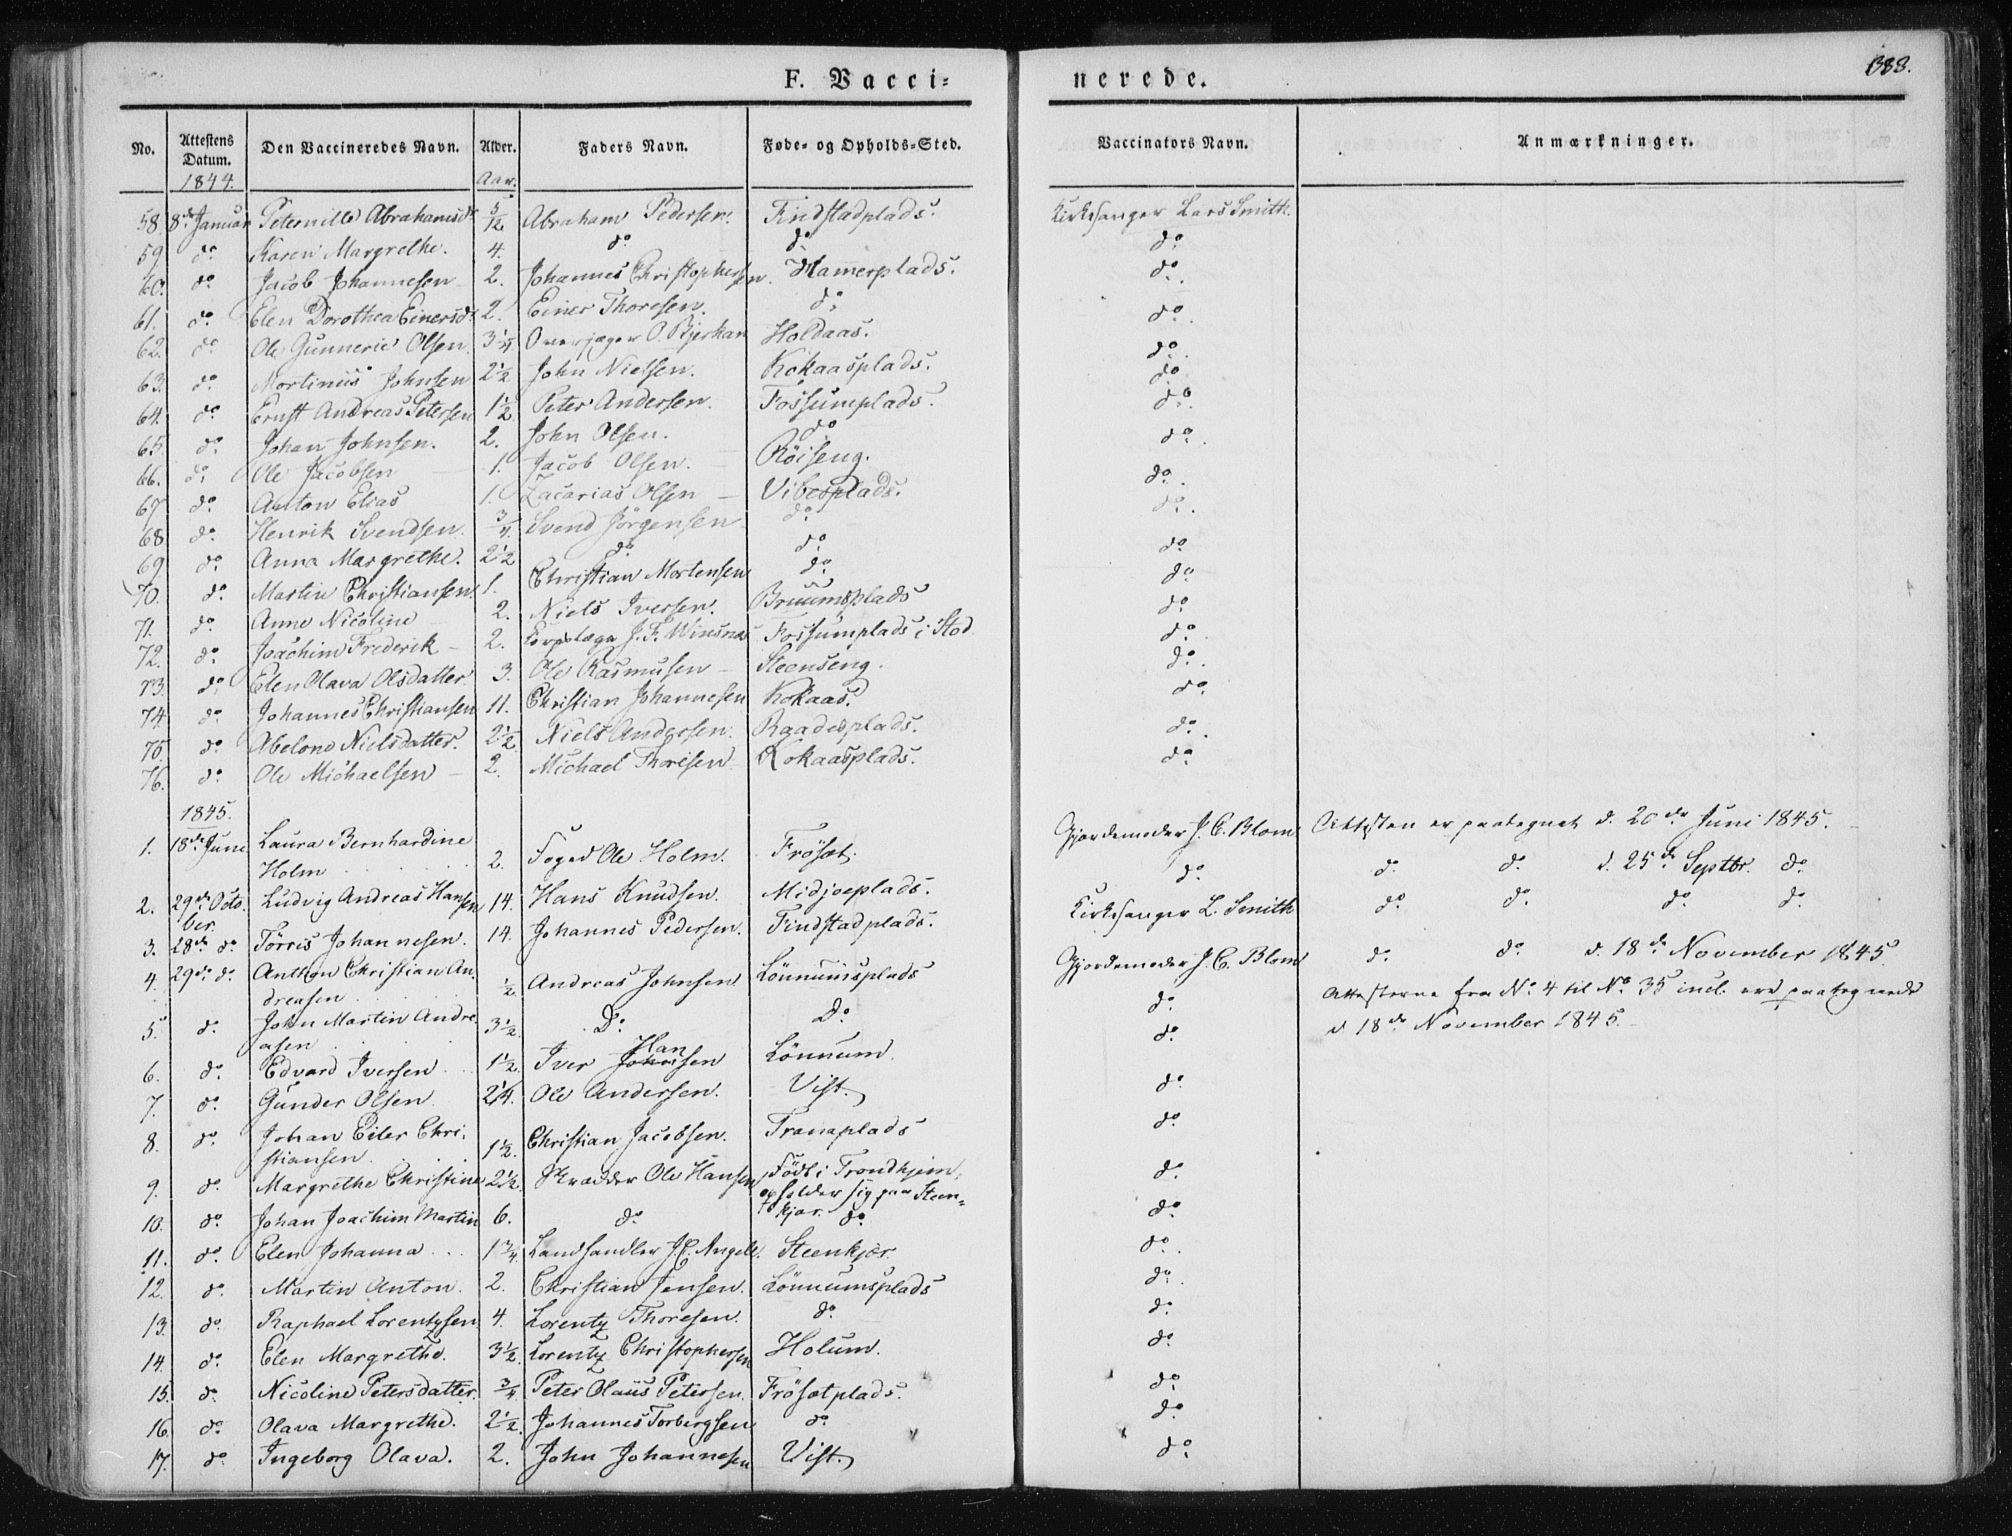 F. Vacci= nerede. 388.
No. Attestens Datum. Den Vaccineredes Navn. Alder. Faders Navn. Føde- og Opholds-Sted. Vaccinators Navn. Anmærkninger.
1844. Aar.
58. 8de Januar Peternille Abrahamsdr 5/12 Abraham Pedersen. Findstadplads. Kirkesanger Lars Smith.
59 do. Karen Margrethe. 4. do do do.
60. do Jacob Johannesen 2. Johannes Christophersen. Hamerplads. do.
61. do. Elen Dorothea Einersdr 2. Einer Thoresen. do. do.
62. do Ole Gunnerie Olsen. 3 1/4. Overjæger O. Bjerkan Holdaas. do.
63. do. Mortinus Johnsen 2 1/2 John Nielsen. Kokaasplads. do.
64. do. Ernst Andreas Petersen 1 1/2 Peter Andersen. Fossumplads. do.
65 do. Johan Johnsen. 2. John Olsen. do do.
66. do. Ole Jacobsen 1. Jacob Olsen. Röiseng. do.
67 do. Anton Elias 1. Zacarias Olsen Vibesplads. do.
68 do. Henrik Svendsen. 3/4 Svend Jörgensen do do.
69 do. Anna Margrethe. 2 1/2 do do. do.
70. do. Martin Christiansen. 1. Christian Mortensen do. do.
71. do. Anne Nicoline 2. Niels Iversen. Bruumsplads do.
72. do. Joachim Frederik 2. Corpslæge J. F. Winsnes Fossumplads i Stod do.
73. do. Elen Olava Olsdatter. 3. Ole Rasmusen Steenseng. do.
74. do. Johannes Christiansen 11. Christian Johannesen Kokaas. do.
75. do. Abelone Nielsdatter. 2 1/2 Niels Andersen. Raadesplads. do.
76. do. Ole Michaelsen 2. Michael Thorisen Kokaasplads. do.
1845.
1. 18de Juni Laura Bernhardine
Holm 2. Foged Ole Holm. Frösæt. Gjordemoder J. C. Blom Attesten er paategnet d. 20de Juni 1845.
2. 29de Octo- Ludvig Andreas Hansen 14. Hans Knudsen. Midjoeplads. do. do. do. d. 25de Septbr. do.
ber.
3. 28de do. Törris Johannesen. 14. Johannes Pedersen. Findstadplads. Kirkesanger L. Smith do do. do. do.
4. 29de do. Anthon Christian An-
dreasen 1/2 Andreas Johnsen Lönnumsplads Gjordemoder J. C. Blom do. do. d. 18de November 1845.
5. do. John Martin Andre-
asen 3 1/2 Do. Do. do. Attesterne fra No. 4 til No. 35 incl. ere paategnede
d 18de November 1845.
6. do. Edvard Iversen 1 1/2. Iver Hansen Lönnum. do.
7. do. Gunder Olsen 2 1/4. Ole Andersen. Vist. do.
8. do. Johan Eiler Chri-
stiansen 1 1/2. Christian Jacobsen. Tranaplads do.
9. do. Margrethe Christine 2 1/2. Skrædder Ole Hansen Födt i Trondhjem,
opholder sig paa Steen-
kjær. do.
10. do. Johan Joachim Martin 6. do. do. do.
11. do. Elen Johanna 1 3/4. Landhandler J. C. Angell. Steenkjær. do.
12. do. Martin Anton. 2. Christian Jensen. Lönnumsplads do.
13. do. Raphael Lorentzsen 4. Lorentz Thoresen. do. do.
14. do. Elen Margrethe. 3 1/2. Lorentz Christophersen Holum. do.
15. do. Nicoline Petersdatter. 3/4 Peter Olaus Petersen. Frösætplads. do.
16. do. Olava Margrethe. 2 1/2. Johannes Torbergsen do. do.
17. do. Ingeborg Olava. 2. John Johannesen Vist. do.